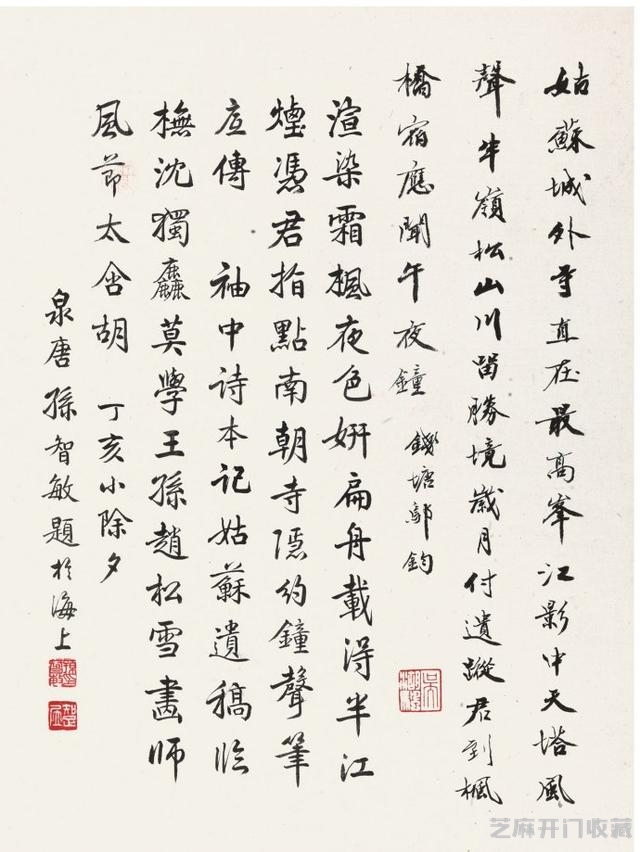 姑蘇城外寺直在最高峯江影中天塔風
聲半嶺松山川留勝境歲月付遺蹤君到楓
橋宿應聞午夜鐘 錢塘鈞
渲染霜楓夜色妍扁舟載得半江
煙憑君指點南朝寺隱約鐘聲筆
底傳 袖中詩本記姑蘇遺稿臨
橅沈獨麤莫學王孫趙松雪畫師
風節太含胡 丁亥小除夕
泉唐孫智敏題於海上
芝麻开门收藏